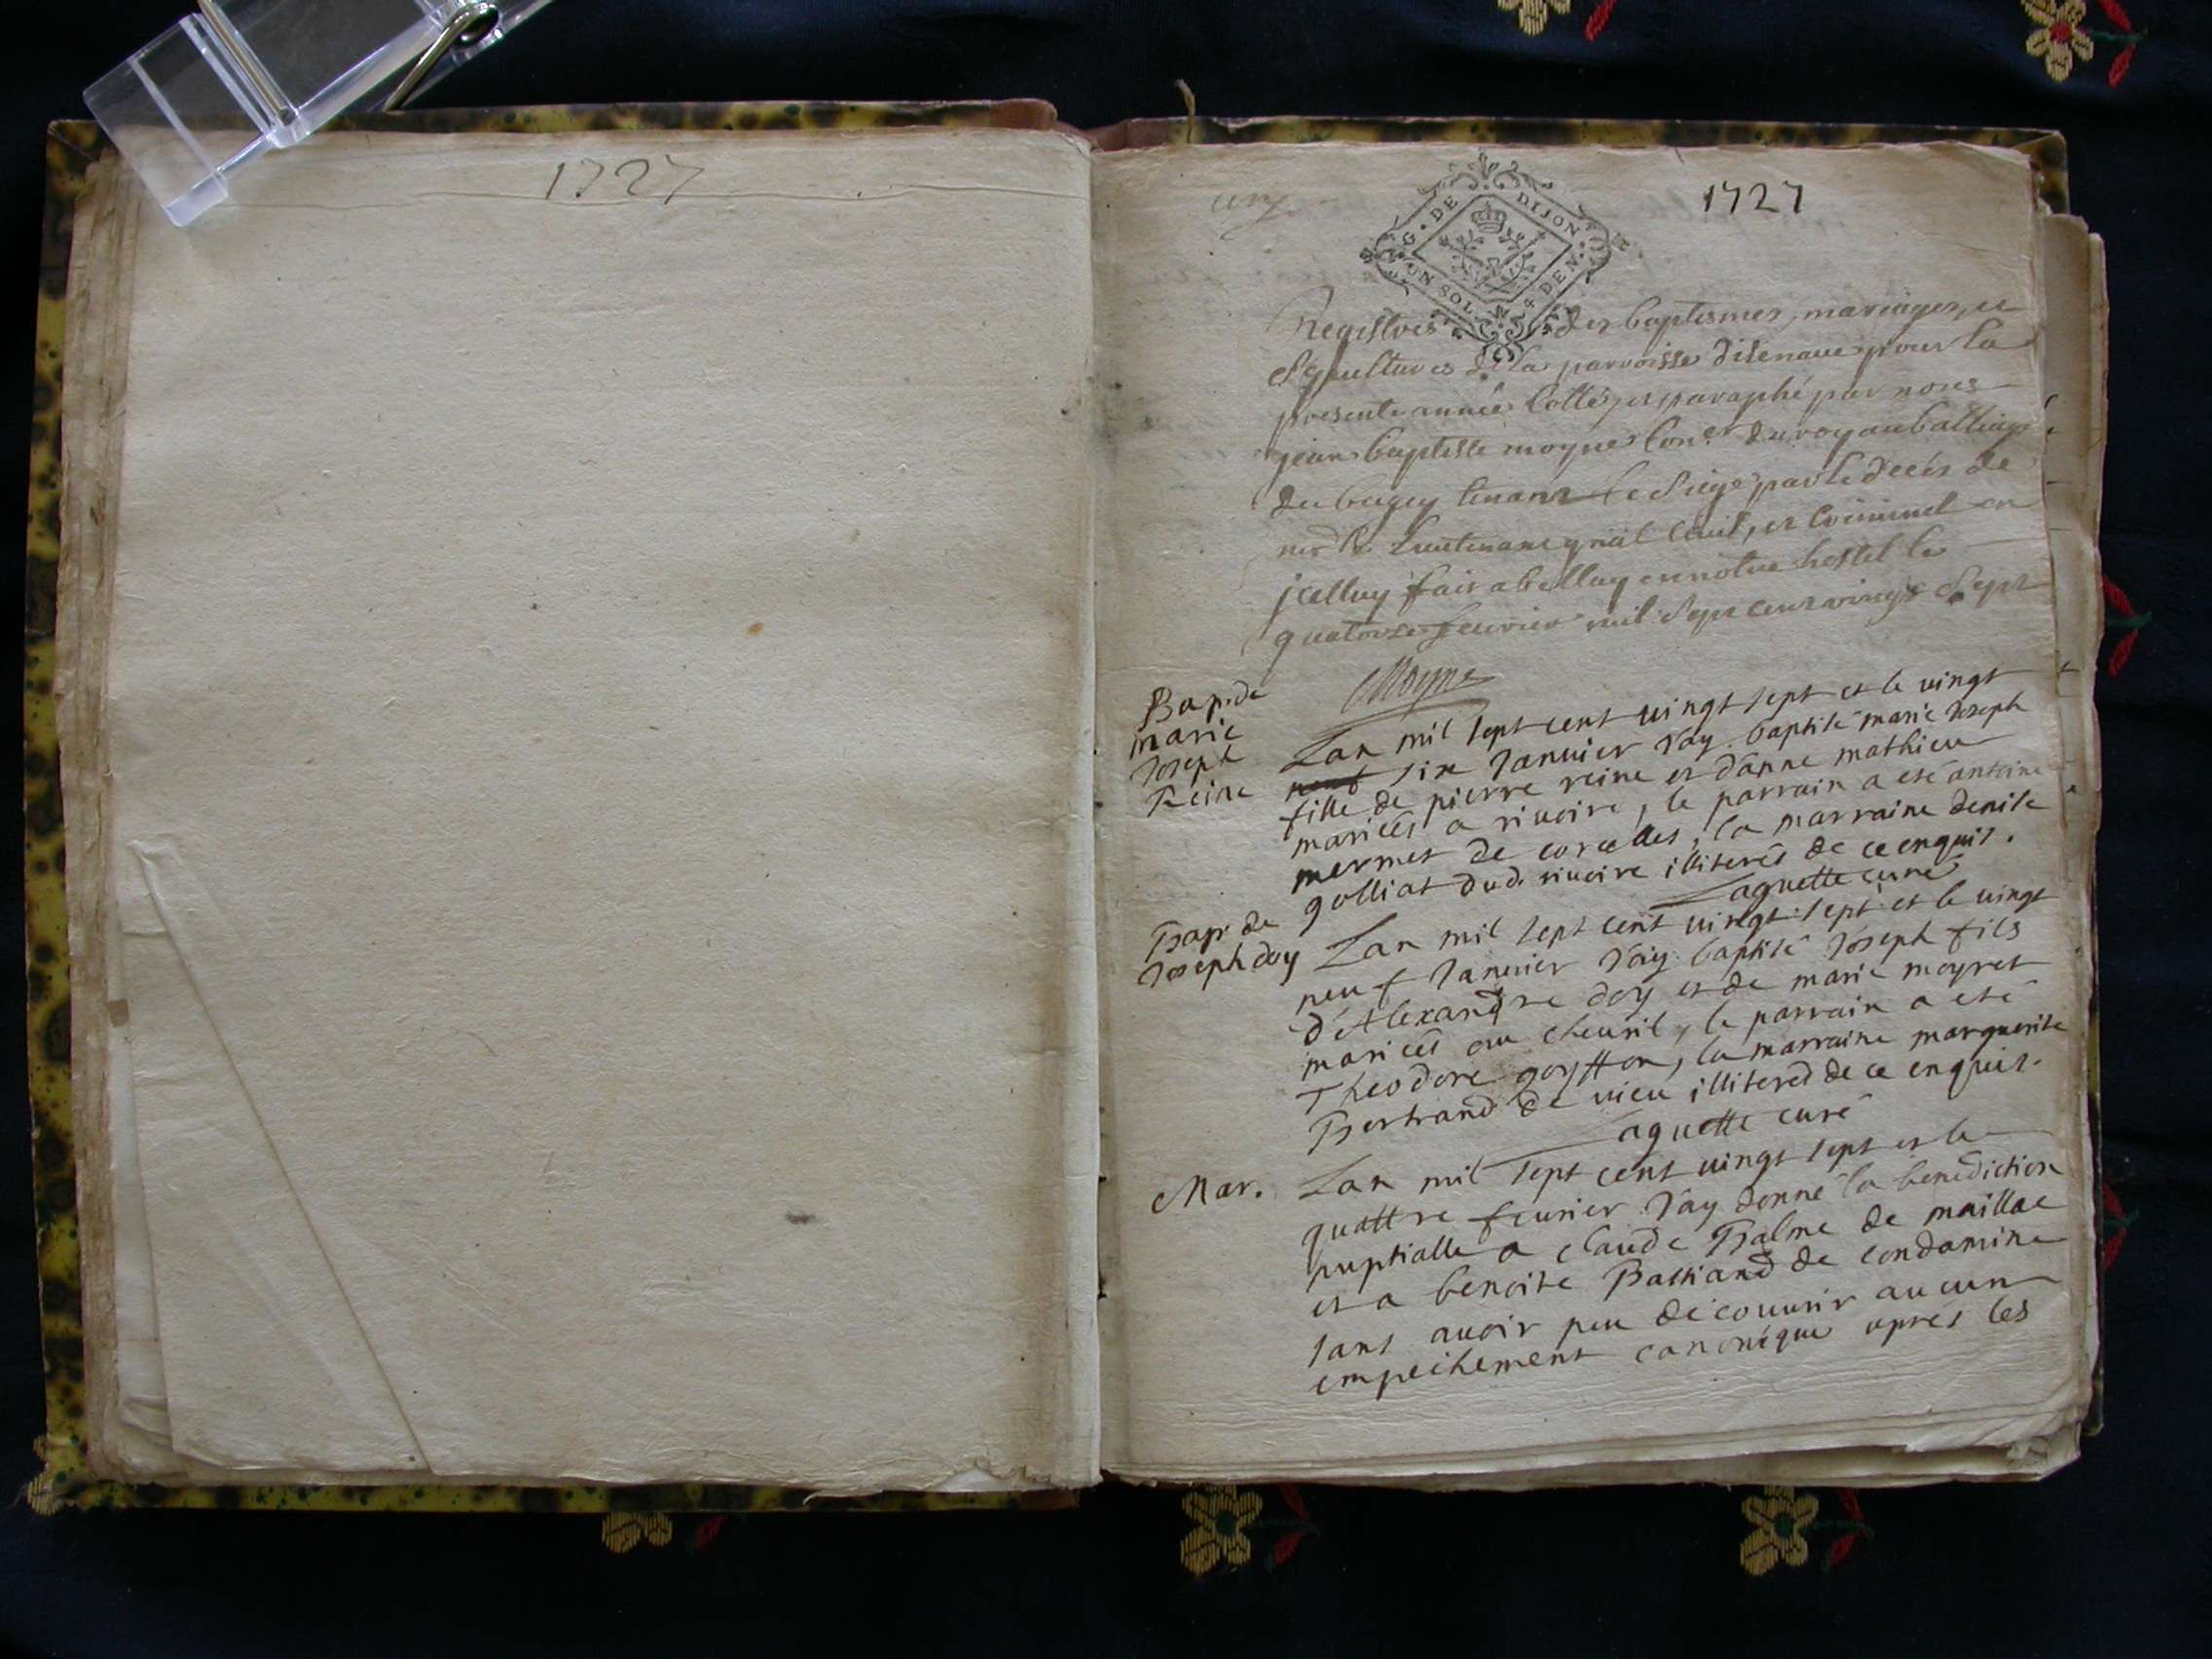 1727
1727
G. DE DIJON
UN SOL. 4 DEN.
Registres des baptesmes, mariages, et
sepultures de la parroisse d'Isenave pour la
presente année Cotté, et paraphé par nous
jean baptiste moyne Con.er du roy au balliage
du bugey tenant le siege par le decés de
mr le Lieutenant gnal Civil, et Criminel en
jcelluy fait a belley en notre hostel le
quatorze feuvrier mil sept cent vingt sept
Moyne
Bap. de
marie
Joseph
Reine
Lan mil sept cent vingt sept et le vingt
six Januier J'ay baptisé marie Joseph
fille de pierre reine et d'anne mathieu
mariées a riuoire, le parrain a esté antoine
mermet de corcelles, la marraine denise
golliat dud. riuoire illiterés de ce enquis.
Laguette curé
Bap. de
Joseph doy
Lan mil sept cent vingt sept et le vingt
neuf Januier J'ay baptisé Joseph fils
d'Alexandre doy et de marie moyret
mariées au cheuril, le parrain a esté
Theodore goyffon, la marraine marguerite
Bertrand de vieu illiterés de ce enquis.
Laguette curé
Mar.
Lan mil sept cent vingt sept et le
quattre feurier J'ay donné la benediction
nuptialle a claude Balme de maillac
et a benoite Balliand de condamine
sans avoir peu découurir aucun
empechement canonique aprés les